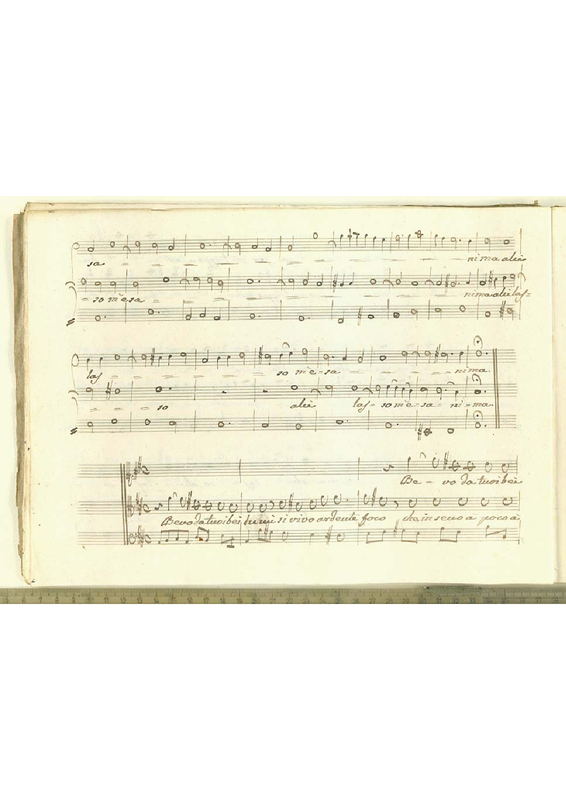 sa nima aliè
so mesa nima aliè las=
las so me-sa nima
so aliè las-so me-sa-ni-ma
Be-vo da tuoi bei
Bevo da tuoi bei lumi si vivo ardente foco che in seno a poco a